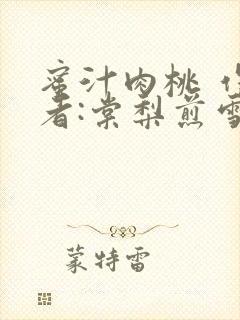 蜜汁肉桃 
者:棠梨煎雪
蒙特雷